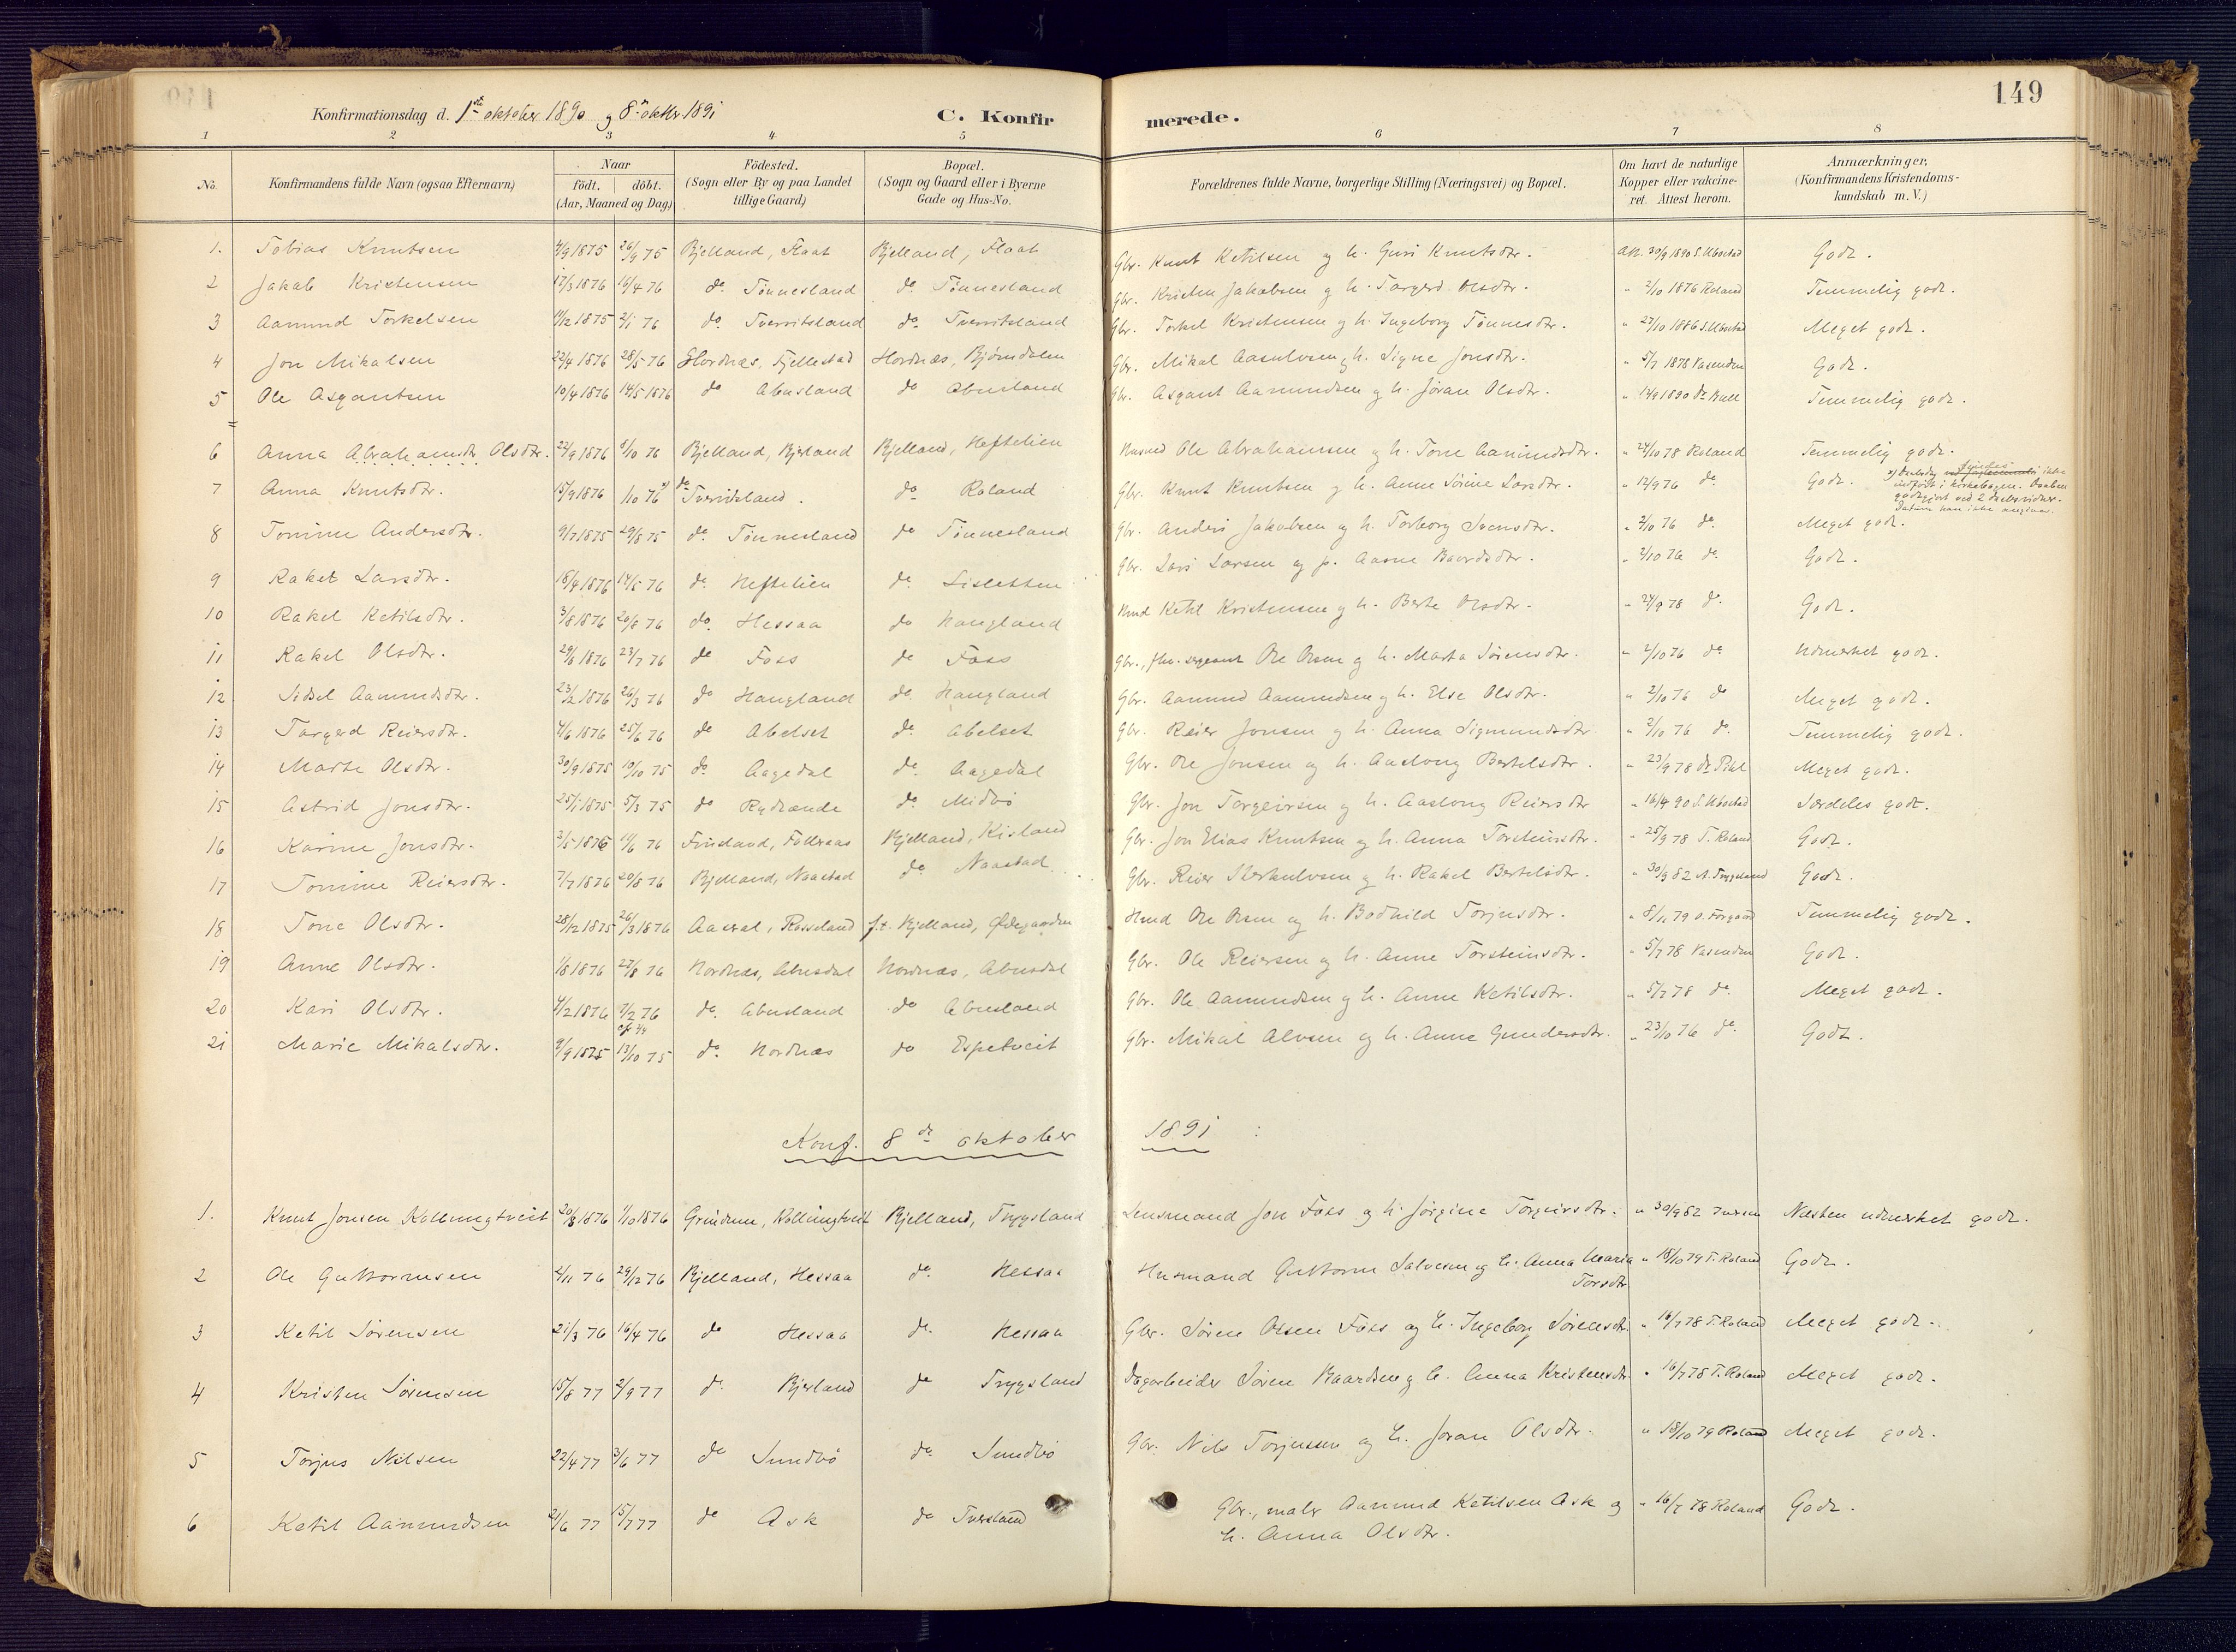 149
Konfirmationsdag d. 1ste oktober 1890 og 8de oktbr 1891
C. Konfirmerede.
1 2 3 4 5 6 7 8
No. Konfirmandens fulde Navn (ogsaa Efternavn) Naar födt. döbt. (Aar, Maaned og Dag) Födested. (Sogn eller By og paa Landet tillige Gaard) Bopæl. (Sogn og Gaard eller i Byerne Gade og Hus-No. Forældrenes fulde Navne, borgerlige Stilling (Næringsvei) og Bopæl. Om havt de naturlige Kopper eller vakcineret. Attest herom. Anmærkninger. (Konfirmandens Kristendomskundskab m. V.)
1. Tobias Knutsen 4/9 1875 26/9 75 Bjelland, Flaat Bjelland, Flaat Gbr. Knut Ketilsen og h. Guri Knutsdtr. Att. 30/9 1890 S. Ubostad Godt.
2 Jakob Kristensen 17/3 1876 16/4 76 do Tönnesland do Tönnesland Gbr. Kristen Jakobsen og h. Targerd Olsdtr. " 2/10 1876 Roland Temmelig godt.
3 Aamund Torkelsen 11/12 1875 2/1 76 do Tverritsland do Tverritsland Gbr. Torkel Kristensen og h. Ingeborg Tönnesdtr. " 27/10 1886 S. Ubostad Meget godt.
4 Jon Mikalsen 22/4 1876 28/5 76 Hordnæs, Fjellestad Hordnæs, Bjørndalen Gbr. Mikal Aasulvsen og h. Signe Jonsdtr. " 5/7 1878 Vasenden Godt.
5 Ole Asgautsen 10/4 1876 14/5 1876 do Abusland do Abusland Gbr. Asgaut Aamundsen og h. Jöran Olsdtr. " 14/9 1890 Dr Bull Temmelig godt.
6 Anna Abrahamsdtr Olsdtr. 22/9 1876 8/10 76 Bjelland, Bjerland Bjelland, Heftelien Husmd Ole Abrahamsen og h. Tone Aamundsdtr. " 24/10 78 Roland Temmelig godt.
7 Anna Knutsdtr. 15/9 1876 /10 76 x) do Tveridsland. do Roland Gbr. Knut Knutsen og h. Anne Sörine Larsdtr. " 12/9 76 do Godt. x) findes ikke indført i kirkebogen. Daaben godtgjort ved 2 Datum kan ikke angives.
8 Tomine Andersdtr. 9/7 1875 29/8 75 do Tönnesland do Tönnesland Gbr. Anders Jakobsen og h. Torborg Svensdtr. " 2/10 76 do Meget godt.
9 Rakel Larsdtr. 18/4 1876 14/5 76 do Heftelien do Sisletten Gbr. Lars Larsen og h. Aasne Baardsdtr. " 2/10 76 do Godt.
10 Rakel Ketilsdtr. 3/8 1876 20/8 76 do Hessaa do Haugland Husmd Ketil Kristensen og h. Berte Olsdtr. " 24/9 78 do Godt.
11 Rakel Olsdtr. 29/6 1876 23/7 76 do Foss do Foss Gbr., fhv. sergeant Ole Olsen og h. Marta Sörensdtr. " 2/10 76 do Udmerket godt.
12 Sidsel Aamundsdtr. 23/2 1876 26/3 76 do Haugland do Haugland Gbr. Aamund Aamundsen og h. Else Olsdtr. " 2/10 76 do Meget godt.
13 Targerd Reiersdtr. 4/6 1876 25/6 76 do Abelset do Abelset Gbr. Reier Jonsen og h. Anna Sigmundsdtr. " 2/10 76 do Temmelig godt.
14 Marte Olsdtr. 30/9 1875 10/10 75 do Aagedal do Aagedal Gbr. Ole Jonsen og h. Aaslong Bertelsdtr. " 23/9 78 Meget godt.
15 Astrid Jonsdtr. 25/1 1875 5/3 75 do Rydlende do Midbö Gbr. Jon Torgeirsen og h. Aaslong Reiersdtr " 16/4 90 S. Ubostad Særdeles godt.
16 Karine Jonsdtr. 3/5 1876 11/6 76 Finsland, Follraas Bjelland, Kisland Gbr. Jon Elias Knutsen og h. Anna Torsteinsdtr. " 25/9 78 T. Roland Godt.
17 Tomine Reiersdtr. 7/7 1876 20/8 76 Bjelland, Naastad do Naastad Gbr. Reier Sterkulvsen og h. Rakel Bertelsdtr. " 30/9 82 A. Trygsland Godt.
18 Tone Olsdtr. 28/12 1875 26/3 1876 Aaseral, Rosseland f.t. Bjelland, Ødegaarden Husmd Ole Olsen og h. Bodhild Torjusdtr. " 8/11 79 Temmelig godt.
19 Anne Olsdtr. 1/8 1876 27/8 76 Hordnæs, Abusdal Hordnæs, Abusdal Gbr. Ole Reiersen og h. Anne Torsteinsdtr. " 5/7 78 Vasenden Godt.
20 Kari Olsdtr. 4/2 1876 7/2 76 do Abusland do Abusland Gbr. Ole Aamundsen og h. Anne Ketilsdtr. " 5/7 78 do Meget godt.
21 Marie Mikalsdtr. 9/9 1875 13/10 75 do Hordnæs do Espetveit Gbr. Mikal Alvsen og h. Anne Gundersdtr. " 23/10 76 do Godt.
Konf. 8de oktober 1891
1. Knut Jonsen Kollungtveit 20/8 1876 1/10 1876 Grindum, Kollungtveit Bjelland, Trygsland Lensmand Jon Foss og h. Jörgine Torgeirsdtr. " 30/9 82 Næsten udmerket godt.
2 Ole Guttormsen 2/11 76 29/12 76 Bjelland, Hessaa do Hessaa Husmand Guttorm Salvesen og h. Anna Maria Torsdtr " 18/10 79 T. Roland Godt.
3 Ketil Sörensen 21/3 76 16/4 76 do Hessaa do Hessaa Gbr. Sören Olsen Foss og h. Ingeborg Sörensdtr. " 16/7 78 T. Roland Meget godt.
4 Kristen Sörensen 15/8 77 2/9 77 do Bjerland do Trygsland Dagarbeider Sören Baardsen og h. Anna Kristensdtr. " 16/7 78 T. Roland Meget godt.
5 Torjus Nilsen 22/4 77 3/6 77 do Sundbö do Sundbö Gbr. Nils Torjussen og h. Joran Olsdtr. " 18/10 79 Roland Meget godt.
6 Ketil Aamundsen 21/6 77 15/7 77 do Ask do Tversland Gbr., maler Aamund Ketilsen Ask og h. Anna Olsdtr. " 16/7 78 Roland Godt.